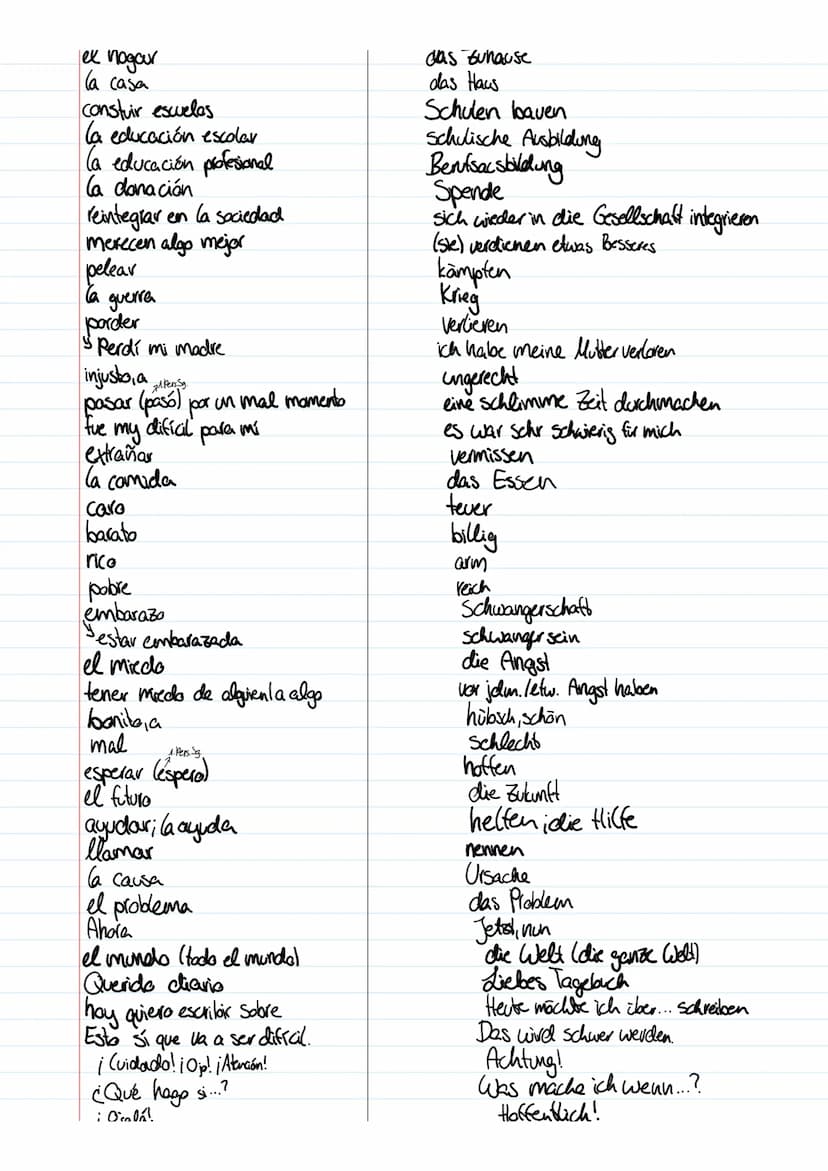 el hogar das Zuhause
la casa das Haus
constuir escuelas Schulen bauen
la educación escolar schulische Ausbildung
la educación profesional Berufsausbildung
la donación Spende
reintegrar en la sociedad sich wieder in die Gesellschaft integrieren
merecen algo mejor (sie) verdienen etwas Besseres
pelear kämpfen
la guerra Krieg
perder verlieren
Perdí mi madre ich habe meine Mutter verloren
injusto,a ungerecht
1.Pers.Sg.
pasar (pasó) por un mal momento eine schlimme Zeit durchmachen
fue my difícil para mí es war sehr schwierig für mich
extrañar vermissen
la comida das Essen
caro teuer
barato billig
rico arm
pobre reich
embarazo Schwangerschaft
estar embarazada schwanger sein
el miedo die Angst
tener miedo de alguien/a algo vor jdm./etw. Angst haben
bonito,a hübsch, schön
mal schlecht
1.Pers.Sg.
esperar (espero) hoffen
el futuro die Zukunft
ayudar; la ayuda helfen; die Hilfe
llamar nennen
la causa Ursache
el problema das Problem
Ahora Jetzt, nun
el mundo (todo el mundo) die Welt (die ganze Welt)
Querido diario Liebes Tagebuch
hoy quiero escribir sobre Heute möchte ich über... schreiben
Esto sí que va a ser difícil. Das wird schwer werden.
¡Cuidado! ¡Ojo! ¡Atención! Achtung!
¿Qué hago si...? Was mache ich wenn...?
¡Ojalá! Hoffentlich!